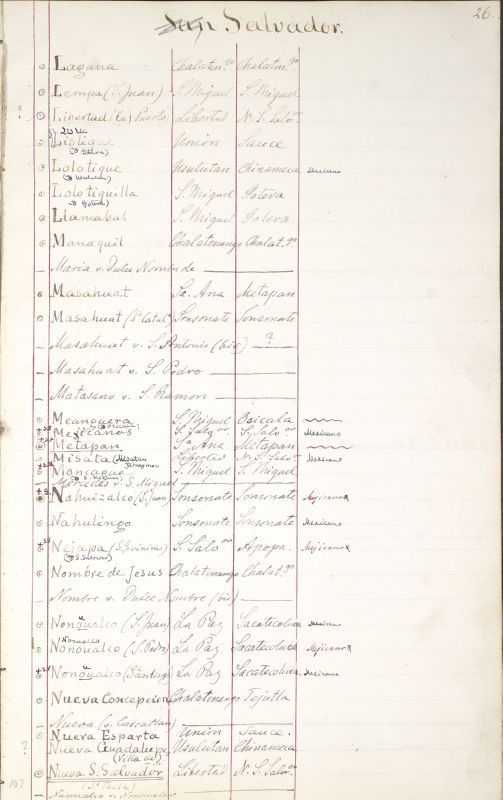 26.
San Salvador.
Laguna Chalaten.go Chalaten.go
Lempa (S. Juan) S. Miguel S. Miguel
Libertad (La) Puerto Libertad N. S. Salv.or
Lislique Union Sauce
Lolotique Usulutan Chinameca Mexicano
Lolotiquilla S. Miguel Gotera
(Gotera)
Llamabal S. Miguel Gotera
Managuil Chalatenango Chalat.go
Maria v. Dulce Nombre de
Masahuat Sa. Ana Metapan
Masahuat (Sta Catal.) Sonsonate Sonsonate
Masahuat v. S. Antonio (bis) ?
Masahuat v. S. Pedro
Matasano v. S. Ramon
Meanguera S. Miguel Osicala
Mexicanos S. Salv.or S. Salv.or Mexicano
Metapan Sa Ana Metapan
Misata Libertad N. S. Salv.or Mexicano
Moncagua S. Miguel S. Miguel
Mercedes v. S. Miguel
Nahuizalco (S. Juan) Sonsonate Sonsonate Mejicano x
Nahulingo Sonsonate Sonsonate Mexicano
Nejapa (S. Gerónimo) S. Salv.or Apopa. Mejicano x
(S. Salvador)
Nombre de Jesus Chalatenango Chalat.go
Nombre v. Dulce Nombre (bis)
Nonoualco (S. Juan) La Paz Sacatecoluca Mexicano
Nonualco
Nonoualco (S. Pedro) La Paz Sacatecoluca Mejicano x
Nonoualco (Santiago) La Paz Sacatecoluca Mexicano
Nueva Concepcion Chalatenango Tejutla
Nueva (v. Cuscatlan)
Nueva Esparta Union Sauce.
? Nueva Guadalupe Usulutan Chinameca
(Villa de)
Nueva S. Salvador Libertad N. S. Salv.or
(Sta Tecla)
107 Nanualco v. Nonoualco